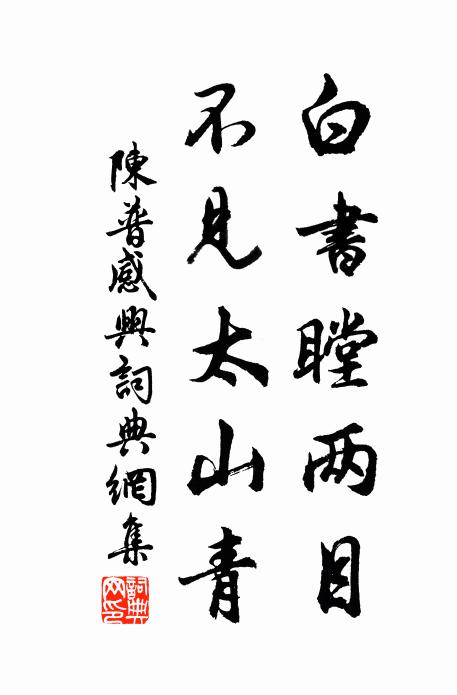 白書瞠两目
不見太山青
陳普感興詞典網集
詞典网印